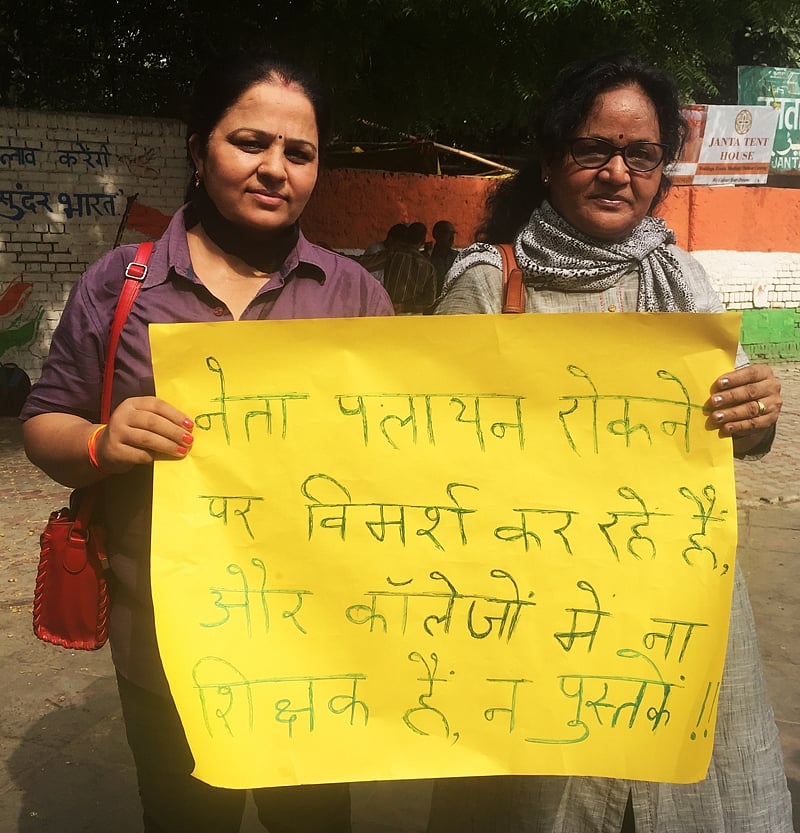 नेता पलायन रोकने
पर विमर्श कर रहे हैं,
और कॉलेजों में ना
शिक्षक हैं, न पुस्तकें !!
करेंगे
सुंदर भारत"
JANTA TENT
HOUSE